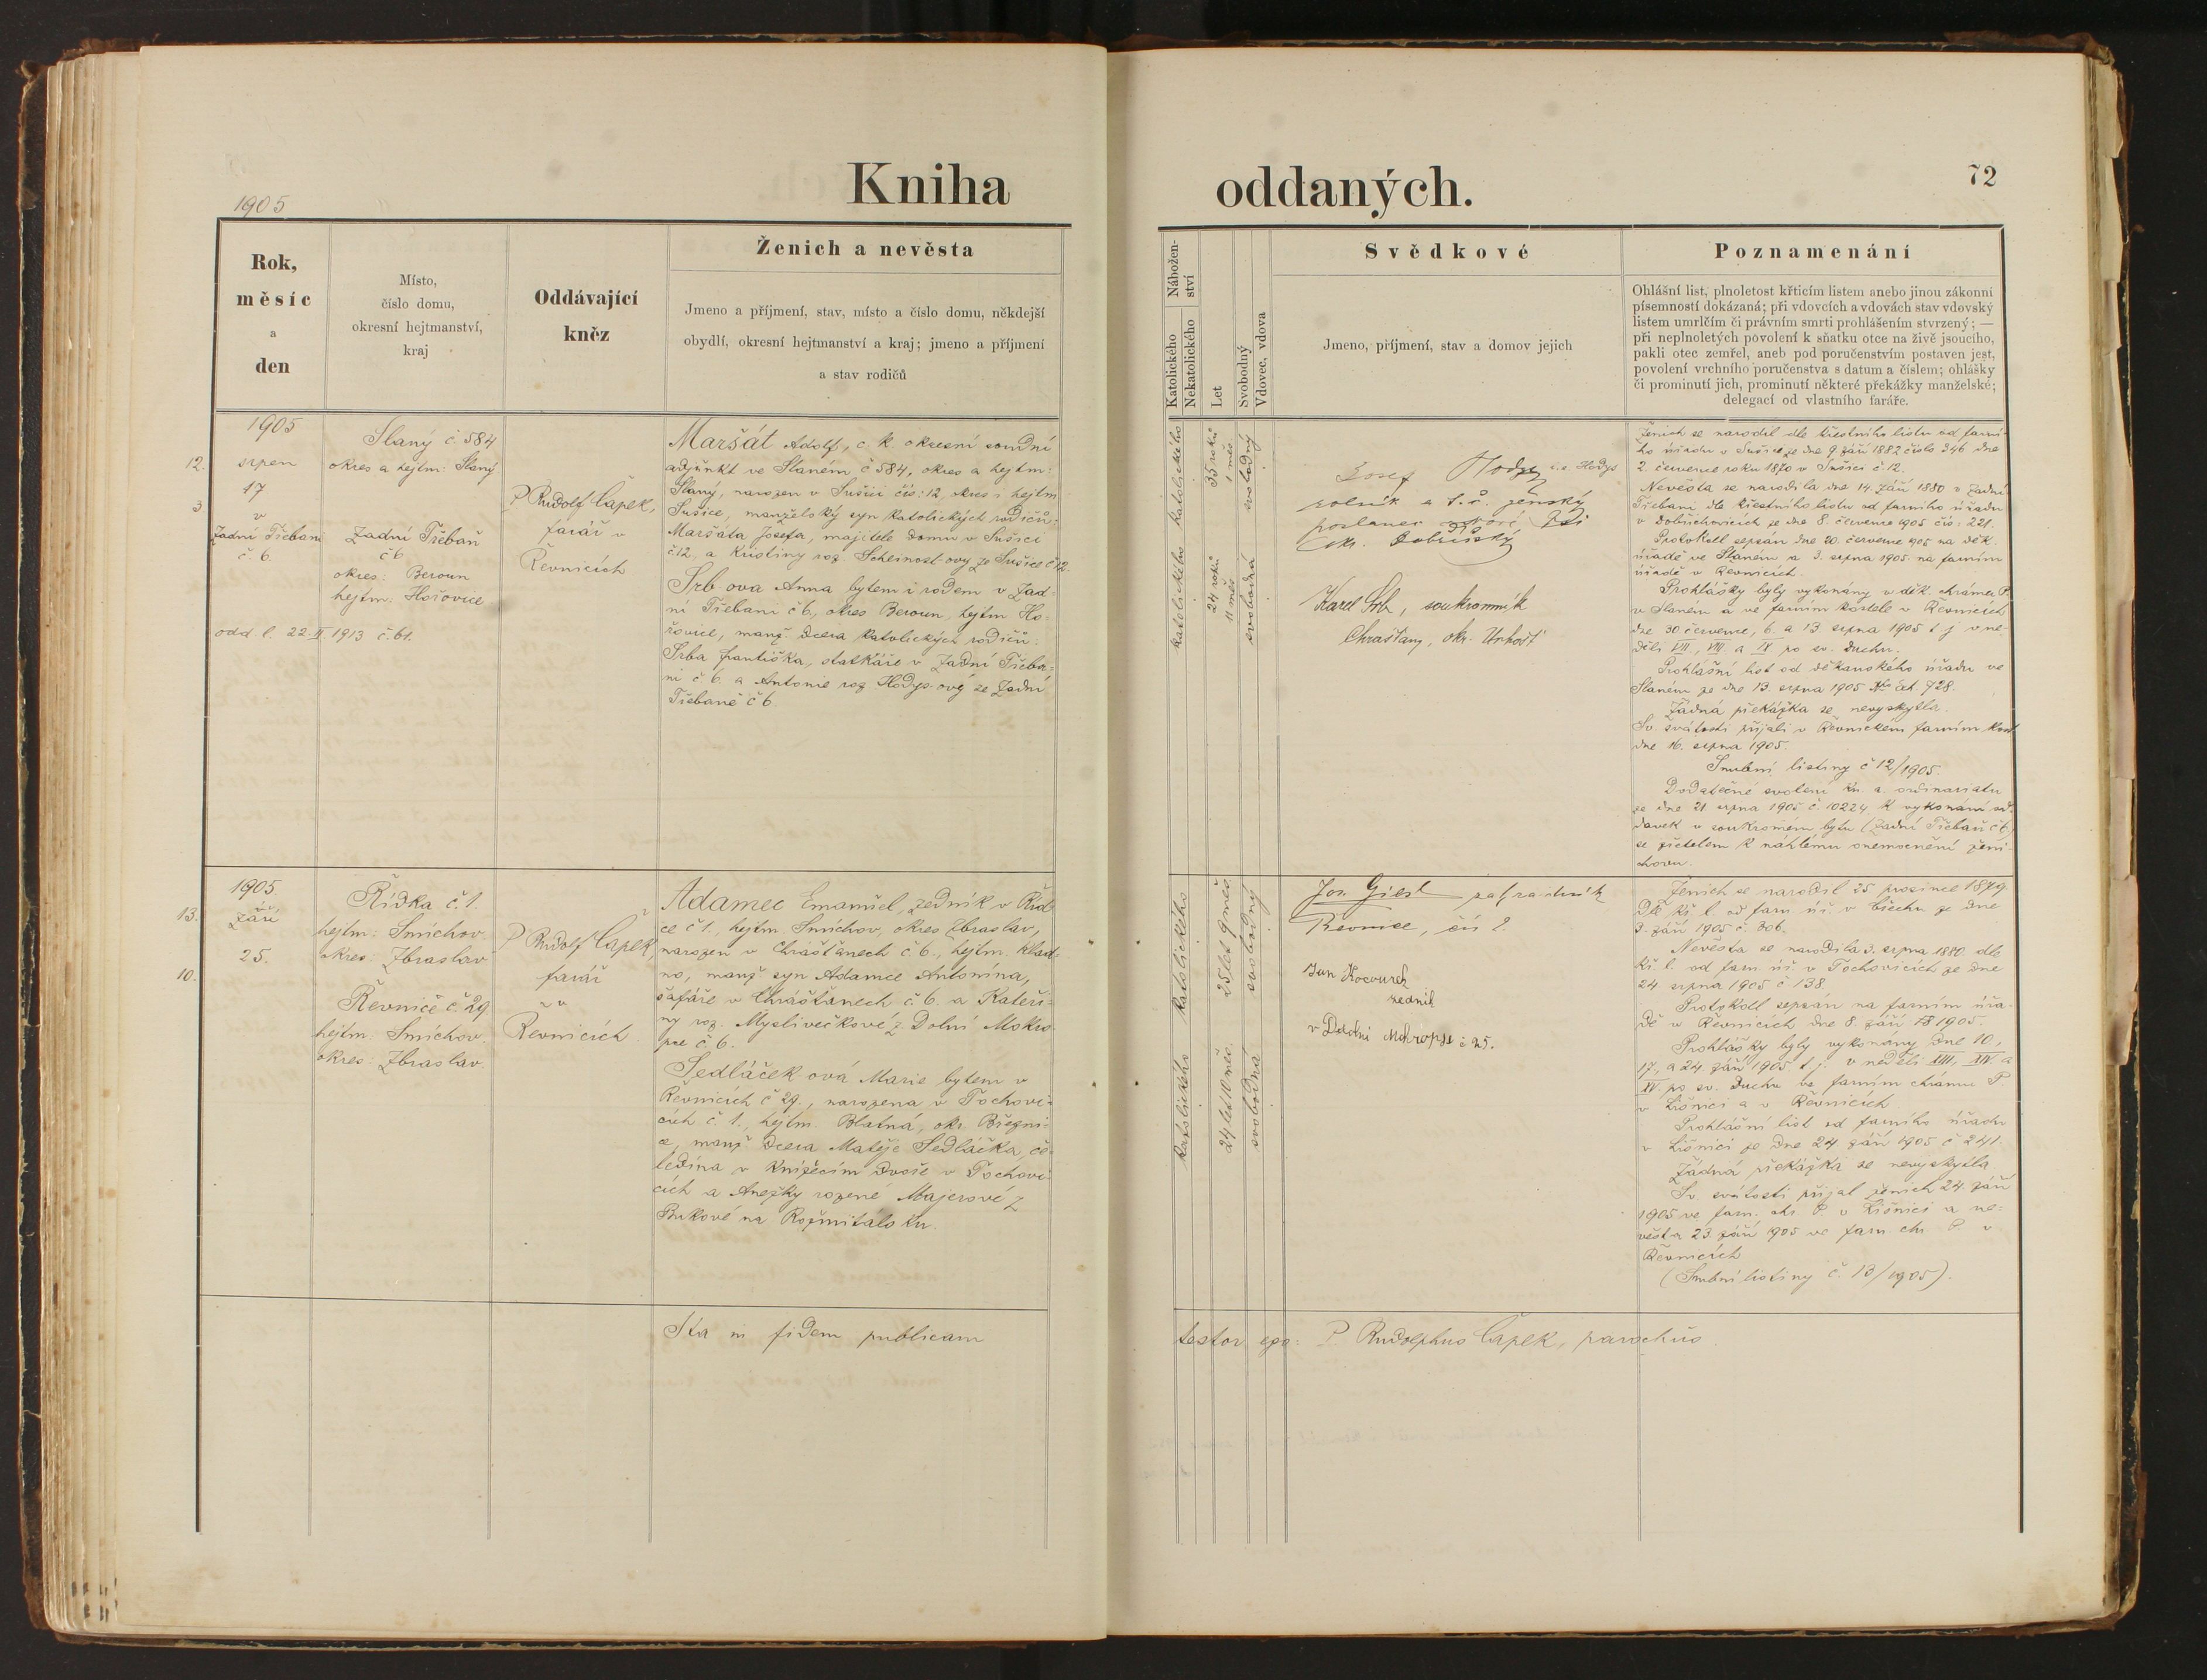 1905
Kniha
oddaných.
72
Rok,
měsíc
a
den
Místo,
číslo domu,
okresní hejtmanství,
kraj
Oddávající
kněz
Ženich a nevěsta
Jmeno a příjmení, stav, místo a číslo domu, někdejší
obydlí, okresní hejtmanství a kraj; jmeno a příjmení
a stav rodičů
Nábožen-
ství
Katolického
Nekatolického
Let
Svobodný
Vdovec, vdova
Svědkové
Jmeno, příjmení, stav a domov jejich
Poznamenání
Ohlášní list, plnoletost křticím listem anebo jinou zákonní
písemností dokázaná; při vdovcích a vdovách stav vdovský
listem umrlčím či právním smrti prohlášením stvrzený; —
při neplnoletých povolení k sňatku otce na živě jsoucího,
pakli otec zemřel, aneb pod poručenstvím postaven jest,
povolení vrchního poručenstva s datum a číslem; ohlášky
či prominutí jich, prominutí některé překážky manželské;
delegací od vlastního faráře.
12.
3
1905
srpen
17
v
Zadní Třebani
č. 6.
odd l. 22.II 1913 č. 61.
Slaný č 584
okres a hejtm: Slaný
Zadní Třebaň
č 6
okres: Beroun
hejtm: Hořovice
P Rudolf Čapek,
farář v
Řevnicích
Maršát Adolf, c. k. okresní soudní
adjunkt ve Slaném č 584, okres a hejtm:
Slaný, narozen v Sušici čís: 12, okres i hejtm
Sušice, manželský syn katolických rodičů
Maršáta Josefa, majitele domu v Sušici
č.12, a Kristiny roz. Scheinost ovy ze Sušice č 12.
Srb ova Anna bytem i rodem v Zad-
ní Třebani č 6, okres Beroun, hejtm Ho-
řovice, manž. dcera katolických rodičů:
Srba Františka, statkáře v Zadní Třeba-
ni č. 6. a Antonie roz Hodys-ové ze Zadní
Třebaně č 6
katolického
katolického
35 roků
1 měs
24 roků
11 měs
svobodný
svobodná
Josef Hodys i.e. Hodys
rolník a t. č. zemský
poslanec
okr. Dobříšský
Karel Srb, soukromník
Chrášťany, okr. Unhošť
Ženich se narodil dle křestního listu od farní-
ho úřadu v Sušici ze dne 9. září 1882 číslo 346 dne
2. července roku 1870 v Sušici č 12.
Nevěsta se narodila dne 14. září 1880 v Zadní
Třebani dle křestního listu od farního úřadu
v Dobřichovicích ze dne 8. července 1905 čís: 221.
Protokoll sepsán dne 20. července 905 na děk.
úřadě ve Slaném a 3. srpna 1905. na farním
úřadě v Řevnicích.
Prohlášky byly vykonány v děk. chrámu P.
v Slaném a ve farním kostele v Řevnicích
dne 30. července, 6. a 13. srpna 1905 t j v ne-
děli VII., VIII. a IX po sv. Duchu.
Prohlášní list od děkanského úřadu ve
Slaném ze dne 13. srpna 1905 No čet. 728.
Žádná překážka se nevyskytla.
Sv. svátosti přijali v Řevnickém farním kost
dne 16. srpna 1905.
Snubní listiny č 12/1905.
Dodatečné svolení kn. a. ordinariatu
ze dne 21 srpna 1905 č. 10224 k vykonání od-
davek v soukromém bytu (Zadní Třebaň č 6)
se zřetelem k náhlému onemocnění ženi-
chovu.
13.
10.
1905.
září
25.
Řídka č.1.
hejtm: Smíchov
okres: Zbraslav
Řevnice č. 29
hejtm: Smíchov.
okres: Zbraslav.
P Rudolf Čapek,
farář
v
Řevnicích.
Adamec Emanuel, zedník v Říd-
ce č 1., hejtm. Smíchov, okres Zbraslav,
narozen v Chrášťanech č 6., hejtm. Klad-
no, manž syn Adamce Antonína,
šafáře v Chrášťanech č 6. a Kateři-
ny roz. Myslivečkové z Dolní Mokro-
pce č. 6.
Sedláček-ová Marie bytem v
Řevnicích č 29., narozena v Tochovi-
cích č. 1., hejtm Blatná, okr. Březni-
ce, manž dcera Matěje Sedláčka, če-
ledína v knížecím dvoře v Tochovi-
cích a Anežky rozené Majerové z
Bukové na Rožmitálsku.
katolického
katolického
25 let 9 měs.
24 let 10 měs.
svobodný
svobodná
Jos. Giesl zahradník
Revnice, čís 2.
Jan Kocourek
zednik
v Dolní Mokropsi č 25.
Ženich se narodil 25. prosince 1879.
Dle kř. l. od farn. úř. v Ořechu ze dne
3. září 1905 č. 306.
Nevěsta se narodila 3. srpna 1880. dle
kř. l. od farn. úř. v Tochovicích ze dne
24 srpna 1905 č 138
Protokoll sepsán na farním úřa-
dě v Řevnicích dne 8. září 1905.
Prohlášky byly vykonány dne 10.,
17., a 24 září 1905. t. j. v neděli XIII., XIV. a
XV. po sv. Duchu ve farním chrámu P.
v Líšnici a v Řevnicích
Prohlášní list od farního úřadu
v Líšnici ze dne 24. září 1905 č 241.
Žádná překážka se nevyskytla
Sv. svátosti přijal ženich 24. září
1905 ve farn. chr P. v Líšnici a ne-
věsta 23. září 905 ve farn chr P. v
Řevnicích
(Snubní listiny č. 13/1905).
Ita in fidem publicam testor ego: P. Rudolphus Čapek, parochus